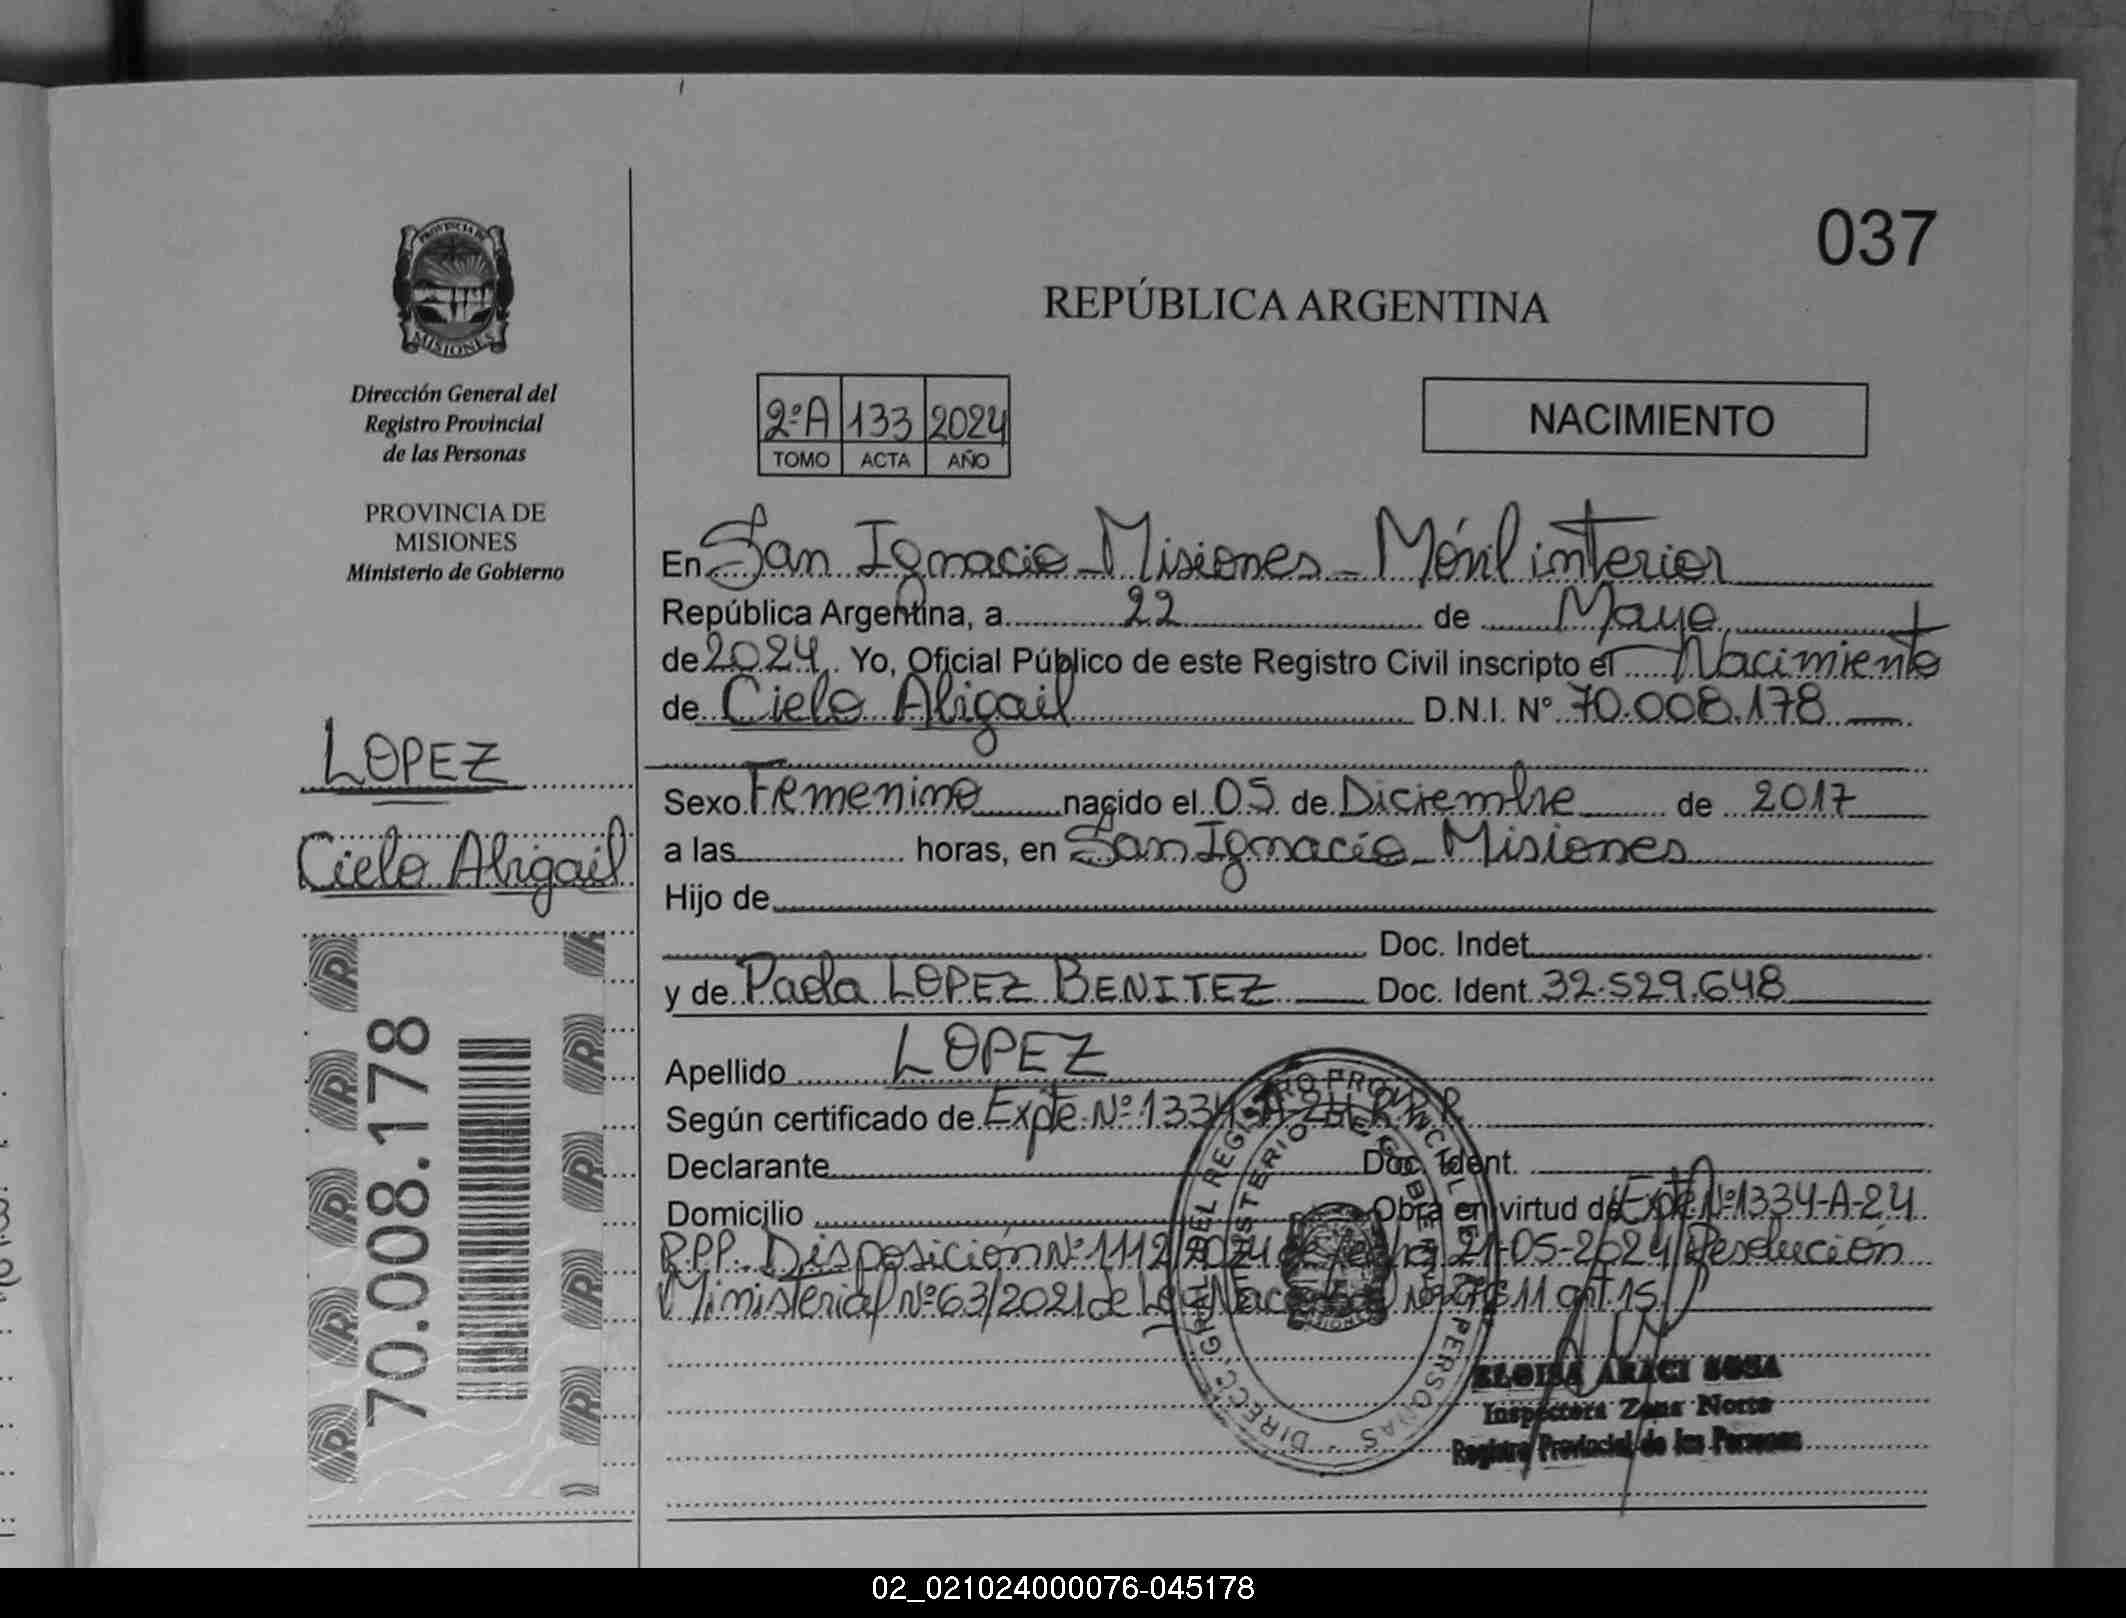 037
PROVINCIA DE
MISIONES
Dirección General del
Registro Provincial
de las Personas
PROVINCIA DE
MISIONES
Ministerio de Gobierno
LOPEZ
Cielo Abigail
70.008.178
REPÚBLICA ARGENTINA
2ºA 133 2024
TOMO ACTA AÑO
NACIMIENTO
En San Ignacio - Misiones - Móvil interior
República Argentina, a 22 de Mayo
de 2024. Yo, Oficial Público de este Registro Civil inscripto el Nacimiento
de Cielo Abigail D.N.I. N° 70.008.178
Sexo Femenino nacido el 05 de Diciembre de 2017
a las horas, en San Ignacio - Misiones
Hijo de
Doc. Indet
y de Paola LOPEZ BENITEZ Doc. Ident 32.529.648
Apellido LOPEZ
Según certificado de Expte. Nº 1334-A-24 R.P.P.
Declarante Doc. Ident.
Domicilio Obra en virtud de Expte Nº 1334-A-24
R.P.P. Disposición Nº 1112/2024 de fecha 21-05-2024/Resolución
Ministerial Nº 63/2021 de Ley Nacional art. 15
DIRECC. GRAL. DEL REGISTRO PROVINCIAL DE LAS PERSONAS
MINISTERIO DE GOBIERNO
ELOISA ARACI SOSA
Inspectora Zona Norte
Registro Provincial de las Personas
02_021024000076-045178